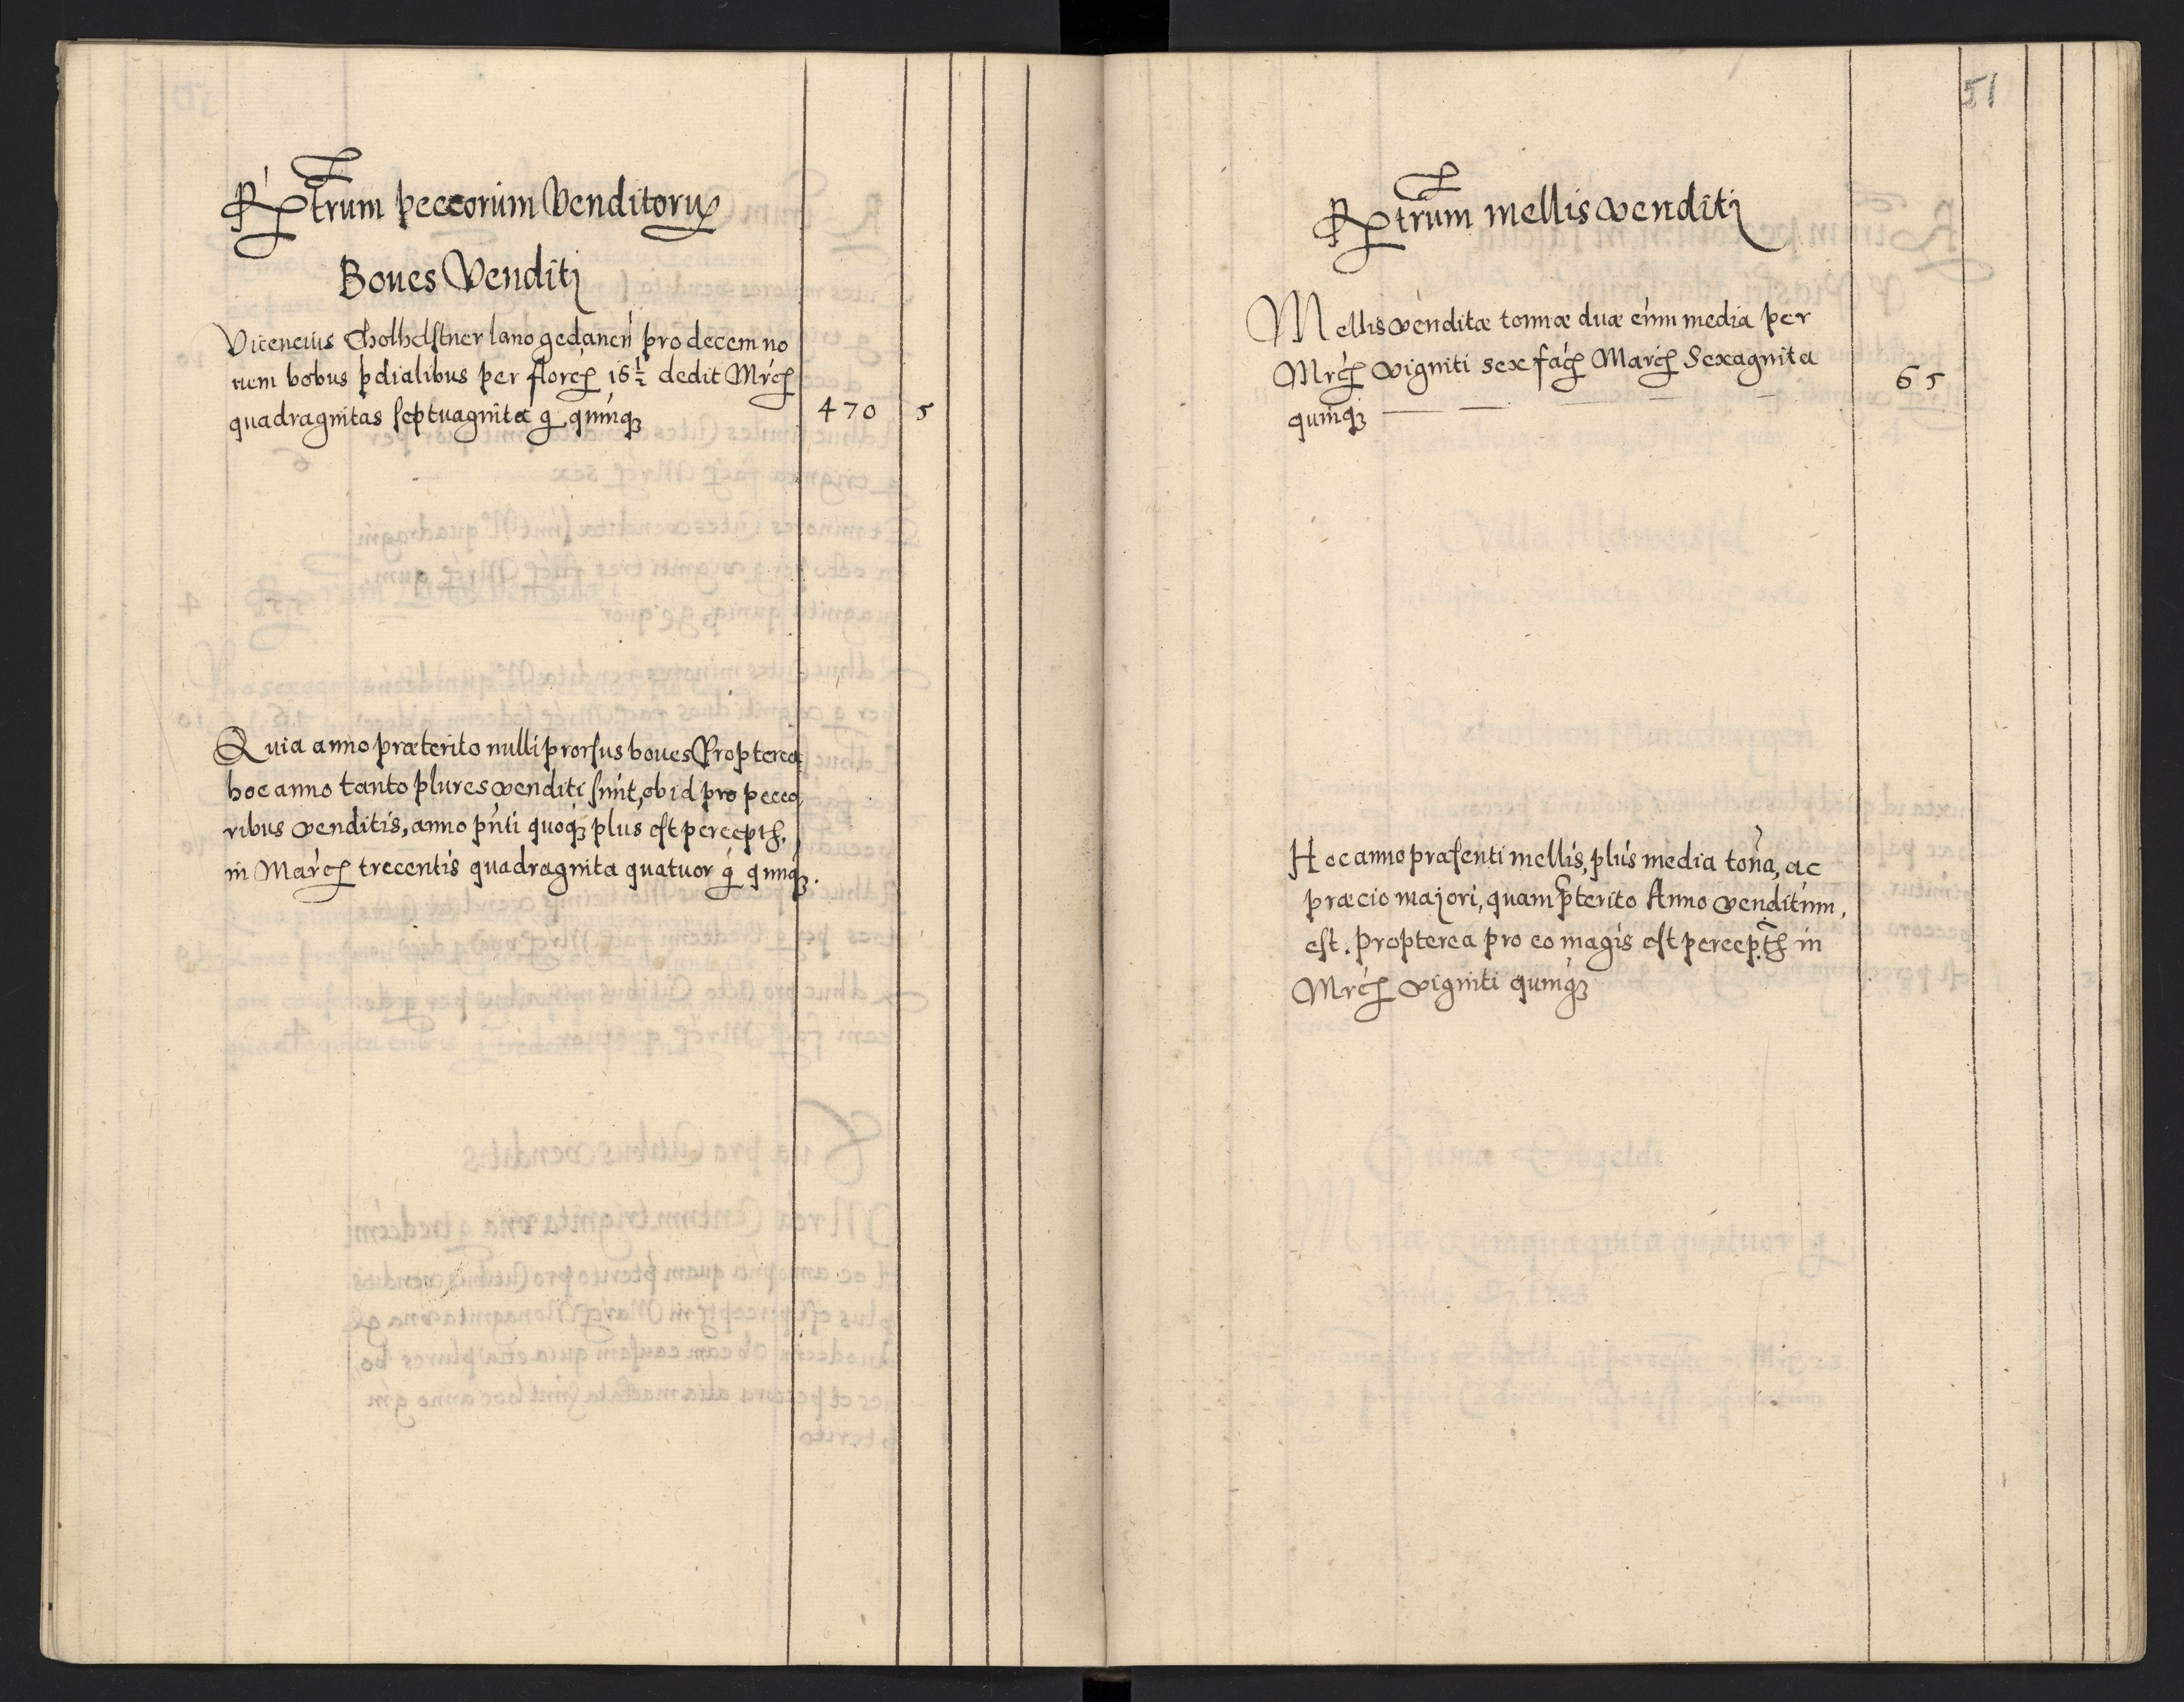 Rptrum peccorum Venditorum
Boues Venditj
Vicencius lano gedanen pro decem no
uem bobus pdialibus per florch 16½ dedit Mrch
quadragintas septuaginta g quinqz 470 5
Quia anno præterito nulli prorsus boues Propterea
hoc anno tanto plures venditi sunt, ob id pro pecco
ribus venditis, anno pnti quoqz plus est percepth,
in March trecentis quadraginta quatuor g quinqz.
51
Rptrum mellis venditj
Mellis venditæ tonnæ duæ cum media per
Mrch viginti sex fach March Sexaginta
quinqz 65
Hoc anno præsenti mellis, plus media tona, ac
præcio majori, quam pterito Anno venditum,
est. Propterea pro eo magis est percepth in
Mrch viginti quinqz